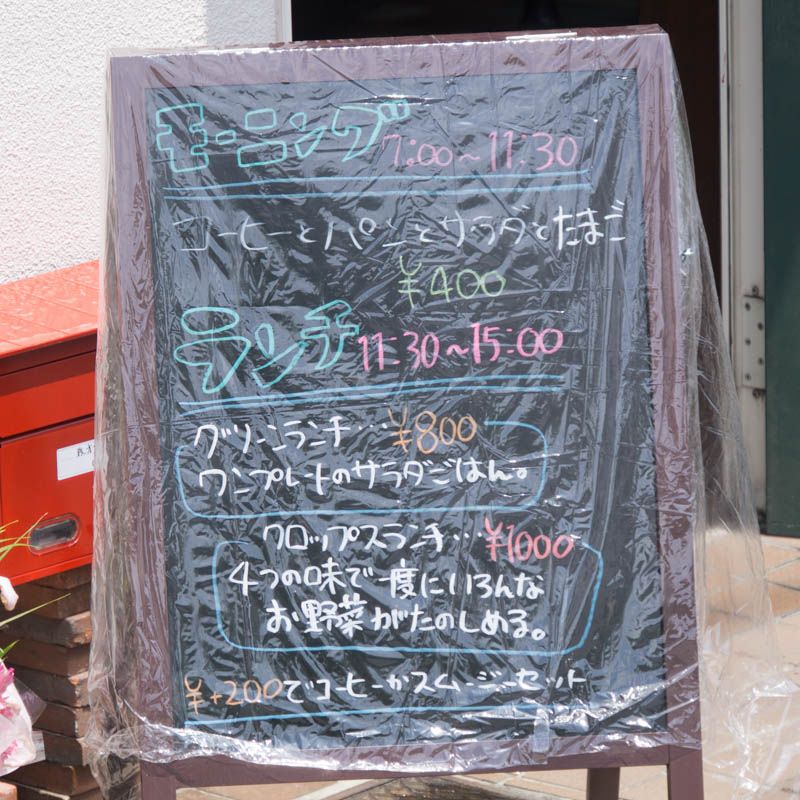 モーニング 7:00~11:30
コーヒーとパンとサラダとたまご
¥400
ランチ 11:30~15:00
グリーンランチ…¥800
ワンプレートのサラダごはん。
クロップスランチ…¥1000
4つの味で一度にいろんな
お野菜がたのしめる。
¥+200でコーヒーかスムージーセット